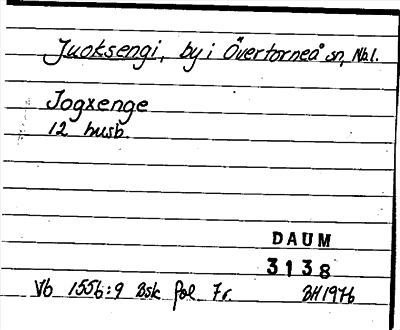 Juoksengi, by i Övertorneå sn, Nb.l.
Jogxenge
12 husb.
DAUM
3138
Vb 1556:9 Bsk fol. 7r. BH1976